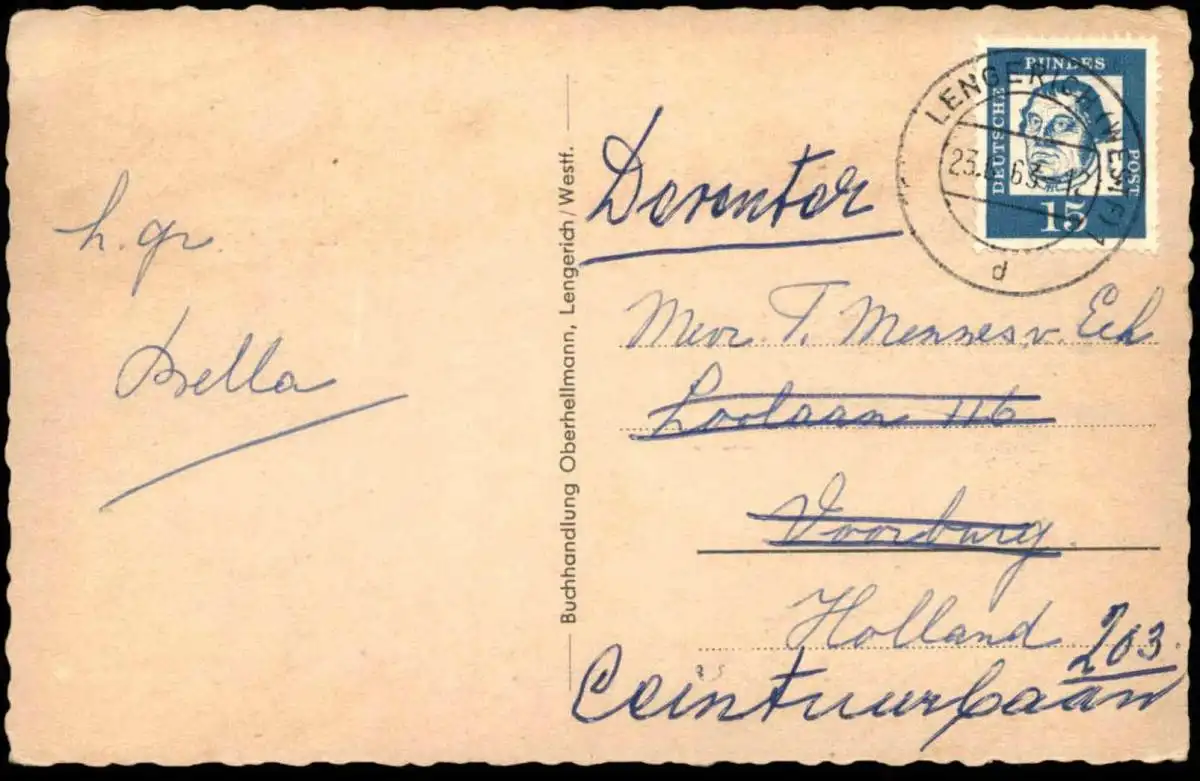 h. gr.
Bella
Buchhandlung Oberhellmann, Lengerich/Westf.
DEUTSCHE BUNDES POST
15
LENGERICH (WESTF)
63
d
Deventer
Mevr. T. Mennes v. Eck
Loolaan 116
Voorburg.
Holland
203.
Ceintuurbaan